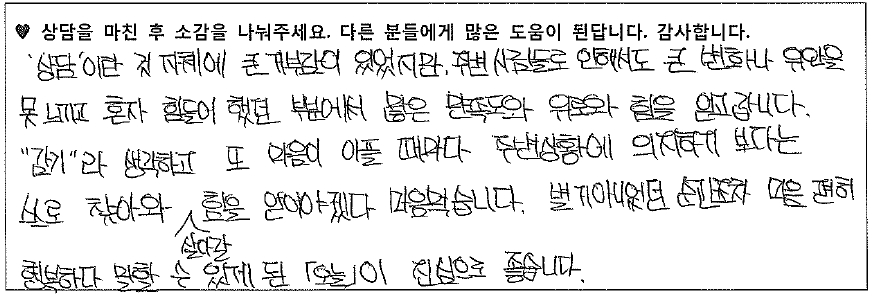 ♥ 상담을 마친 후 소감을 나눠주세요. 다른 분들에게 많은 도움이 된답니다. 감사합니다.
'상담'이란 것 자체에 큰 거부감이 있었지만, 주변 사람들로 인해서도 큰 변화나 위안을
못 느끼고 혼자 힘들어 했던 부분에서 많은 만족도와 위로와 힘을 얻고갑니다.
"감기"라 생각하고 또 마음이 아플 때마다 주변상황에 의지하기 보다는
스스로 찾아와 힘을 얻어야겠다 마음먹습니다. 별거아니었던 순간조차 마음 편히
살다갈
행복하다 말할 수 있게 된 「오늘」이 진심으로 좋습니다.